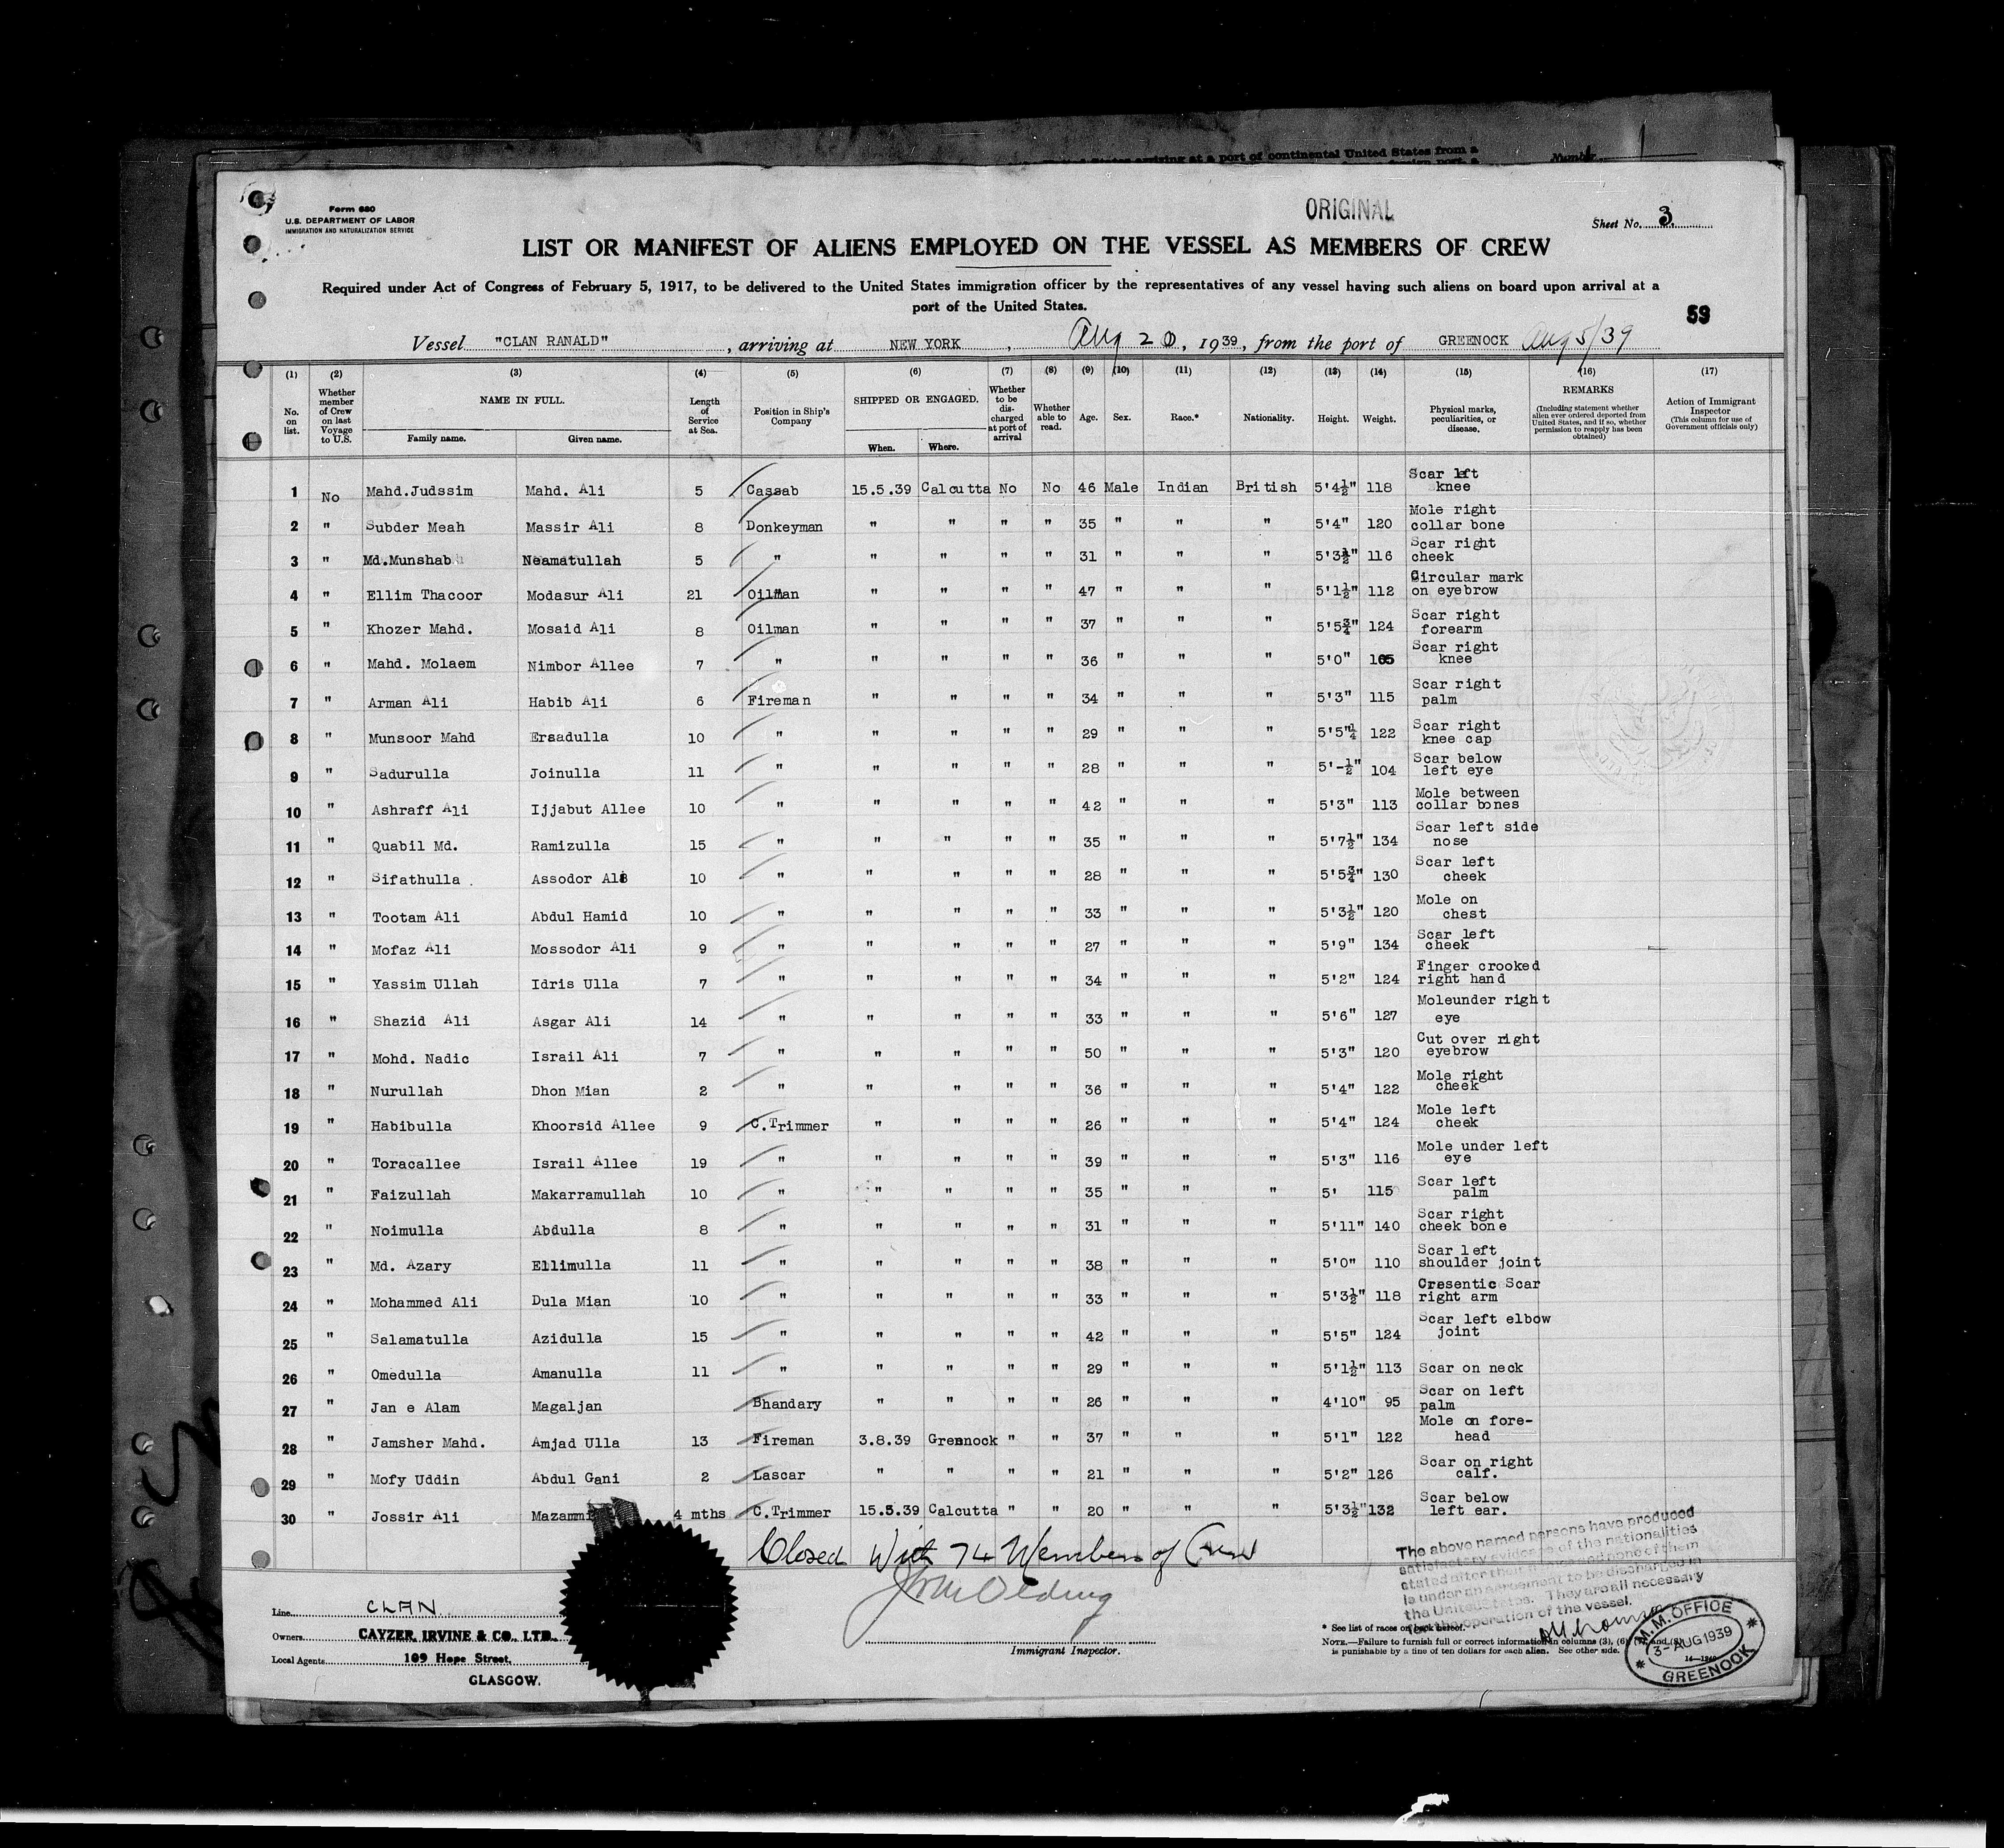 United States arriving at a port of continental United States from a
Number 1
Form 680
U.S. DEPARTMENT OF LABOR
IMMIGRATION AND NATURALIZATION SERVICE
ORIGINAL
Sheet No. 3
LIST OR MANIFEST OF ALIENS EMPLOYED ON THE VESSEL AS MEMBERS OF CREW
Required under Act of Congress of February 5, 1917, to be delivered to the United States immigration officer by the representatives of any vessel having such aliens on board upon arrival at a
port of the United States.
59
Vessel "CLAN RANALD", arriving at NEW YORK, Aug 20, 1939, from the port of GREENOCK Aug 5/39
(1) No. on list.
(2) Whether member of Crew on last Voyage to U.S.
(3) NAME IN FULL. Family name. Given name.
(4) Length of Service at Sea.
(5) Position in Ship's Company
(6) SHIPPED OR ENGAGED. When. Where.
(7) Whether to be discharged at port of arrival
(8) Whether able to read.
(9) Age.
(10) Sex.
(11) Race.*
(12) Nationality.
(13) Height.
(14) Weight.
(15) Physical marks, peculiarities, or disease.
(16) REMARKS (Including statement whether alien ever ordered deported from United States, and if so, whether permission to reapply has been obtained)
(17) Action of Immigrant Inspector (This column for use of Government officials only)
1 No Mahd.Judssim Mahd. Ali 5 Cassab 15.5.39 Calcutta No No 46 Male Indian British 5'4½" 118 Scar left knee
2 " Subder Meah Massir Ali 8 Donkeyman " " " " 35 " " " 5'4" 120 Mole right collar bone
3 " Md.Munshab Neamatullah 5 " " " " " 31 " " " 5'3½" 116 Scar right cheek
4 " Ellim Thacoor Modasur Ali 21 Oilman " " " " 47 " " " 5'1½" 112 Circular mark on eyebrow
5 " Khozer Mahd. Mosaid Ali 8 Oilman " " " " 37 " " " 5'5¾" 124 Scar right forearm
6 " Mahd. Molaem Nimbor Allee 7 " " " " " 36 " " " 5'0" 105 Scar right knee
7 " Arman Ali Habib Ali 6 Fireman " " " " 34 " " " 5'3" 115 Scar right palm
8 " Munsoor Mahd Ersadulla 10 " " " " " 29 " " " 5'5"¼ 122 Scar right knee cap
9 " Sadurulla Joinulla 11 " " " " " 28 " " " 5'-½" 104 Scar below left eye
10 " Ashraff Ali Ijjabut Allee 10 " " " " " 42 " " " 5'3" 113 Mole between collar bones
11 " Quabil Md. Ramizulla 15 " " " " " 35 " " " 5'7½" 134 Scar left side nose
12 " Sifathulla Assodor Ali 10 " " " " " 28 " " " 5'5¾" 130 Scar left cheek
13 " Tootam Ali Abdul Hamid 10 " " " " " 33 " " " 5'3½" 120 Mole on chest
14 " Mofaz Ali Mossodor Ali 9 " " " " " 27 " " " 5'9" 134 Scar left cheek
15 " Yassim Ullah Idris Ulla 7 " " " " " 34 " " " 5'2" 124 Finger crooked right hand
16 " Shazid Ali Asgar Ali 14 " " " " " 33 " " " 5'6" 127 Moleunder right eye
17 " Mohd. Nadic Israil Ali 7 " " " " " 50 " " " 5'3" 120 Cut over right eyebrow
18 " Nurullah Dhon Mian 2 " " " " " 36 " " " 5'4" 122 Mole right cheek
19 " Habibulla Khoorsid Allee 9 C.Trimmer " " " " 26 " " " 5'4" 124 Mole left cheek
20 " Toracallee Israil Allee 19 " " " " " 39 " " " 5'3" 116 Mole under left eye
21 " Faizullah Makarramullah 10 " " " " " 35 " " " 5' 115 Scar left palm
22 " Noimulla Abdulla 8 " " " " " 31 " " " 5'11" 140 Scar right cheek bone
23 " Md. Azary Ellimulla 11 " " " " " 38 " " " 5'0" 110 Scar left shoulder joint
24 " Mohammed Ali Dula Mian 10 " " " " " 33 " " " 5'3½" 118 Cresentic Scar right arm
25 " Salamatulla Azidulla 15 " " " " " 42 " " " 5'5" 124 Scar left elbow joint
26 " Omedulla Amanulla 11 " " " " " 29 " " " 5'1½" 113 Scar on neck
27 " Jan e Alam Magaljan Bhandary " " " " 26 " " " 4'10" 95 Scar on left palm
28 " Jamsher Mahd. Amjad Ulla 13 Fireman 3.8.39 Greenock " " 37 " " " 5'1" 122 Mole on fore-head
29 " Mofy Uddin Abdul Gani 2 Lascar " " " " 21 " " " 5'2" 126 Scar on right calf.
30 " Jossir Ali Mazammi 4 mths C.Trimmer 15.5.39 Calcutta " " 20 " " " 5'3½" 132 Scar below left ear.
Closed With 74 Members of Crew
The above named persons have produced
satisfactory evidence of the nationalities
stated after their names and none of them
is under an agreement to be discharged in
the United States. They are all necessary
for the operation of the vessel.
Line CLAN
Owners CAYZER, IRVINE & CO., LTD.,
Local Agents 109 Hope Street,
GLASGOW.
Immigrant Inspector.
* See list of races on back hereof.
NOTE.—Failure to furnish full or correct information in columns (3), (6), (7) and (8)
is punishable by a fine of ten dollars for each alien. See other side.
M.M. OFFICE
3-AUG 1939
GREENOCK